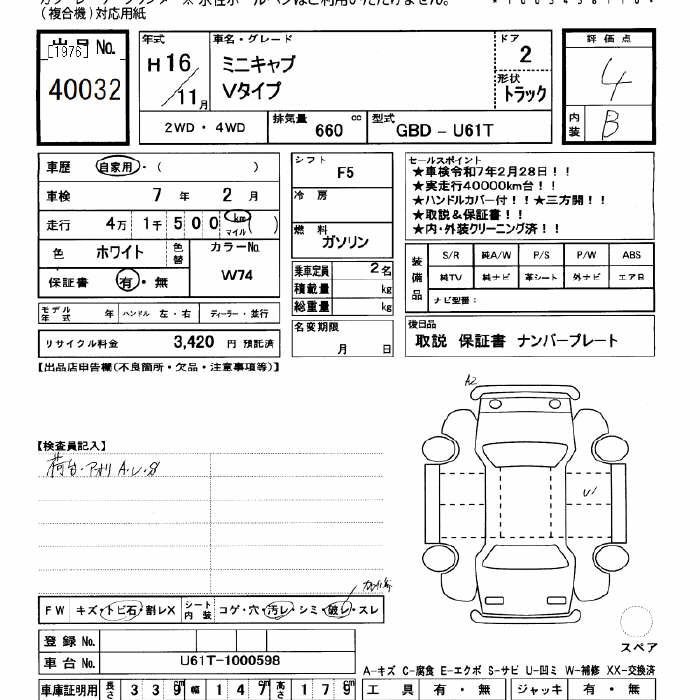 (複合機)対応用紙
出品No.
[1976]
40032
年式
H16/11月
車名・グレード
ミニキャブ
Vタイプ
ドア
2
形状
トラック
評価点
4
内装
B
2WD・4WD
排気量 660 cc
型式 GBD - U61T
車歴 自家用・( )
車検 7年 2月
走行 4万 1千 5 0 0 km マイル ( )
色 ホワイト 色替
カラーNo.
W74
保証書 有・無
シフト F5
冷房
燃料 ガソリン
乗車定員 2名
積載量 kg
総重量 kg
セールスポイント
★車検令和7年2月28日!!
★実走行40000km台!!
★ハンドルカバー付!!★三方開!!
★取説&保証書!!
★内・外装クリーニング済!!
装備品
S/R 純A/W P/S P/W ABS
純TV 純ナビ 革シート 外ナビ エアB
ナビ型番:
モデル年式 年 ハンドル 左・右 ディーラー・並行
リサイクル料金 3,420 円 預託済
名変期限
月 日
後日品
取説 保証書 ナンバープレート
【出品店申告欄(不良箇所・欠品・注意事項等)】
A2
【検査員記入】
荷台・アオリ A・U・S
U1
FW キズ・トビ石・割レX シート内装 コゲ・穴・汚レ・シミ・破レ・スレ
登録No.
車台No. U61T-1000598
スペア
A-キズ C-腐食 E-エクボ S-サビ U-凹ミ W-補修 XX-交換済
車庫証明用 長さ 3 3 9 cm 幅 1 4 7 cm 高さ 1 7 9 cm
工具 有・無 ジャッキ 有・無